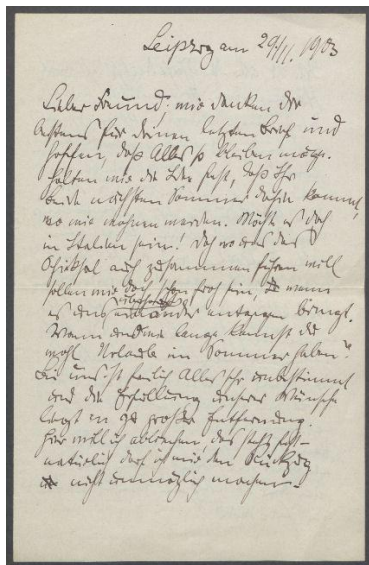 Leipzig am 29/11. 1903
Lieber Freund! wir danken dir
bestens für deinen letzten Brief und
hoffen, daß Alles so bleiben möge.
Halten wir die Idee fest, daß Ihr
beide nächsten Sommer dahin kommt,
wo wir wohnen werden. Möcht es doch
in Italien sein! Doch wo uns das
Schicksal auch zusammen führen will
sollen wir doch schon froh sein, wenn
es uns überhaupt einander entgegen bringt.
Wann und wie lange kannst du
wohl Urlaub im Sommer haben?
Bei uns ist freilich Alles sehr unbestimmt
und die Erfüllung unserer Wünsche
liegt in großer Entfernung.
Hier will ich abbrechen, das steht fest –
natürlich darf ich mir den Rückzug
nicht unmöglich machen.